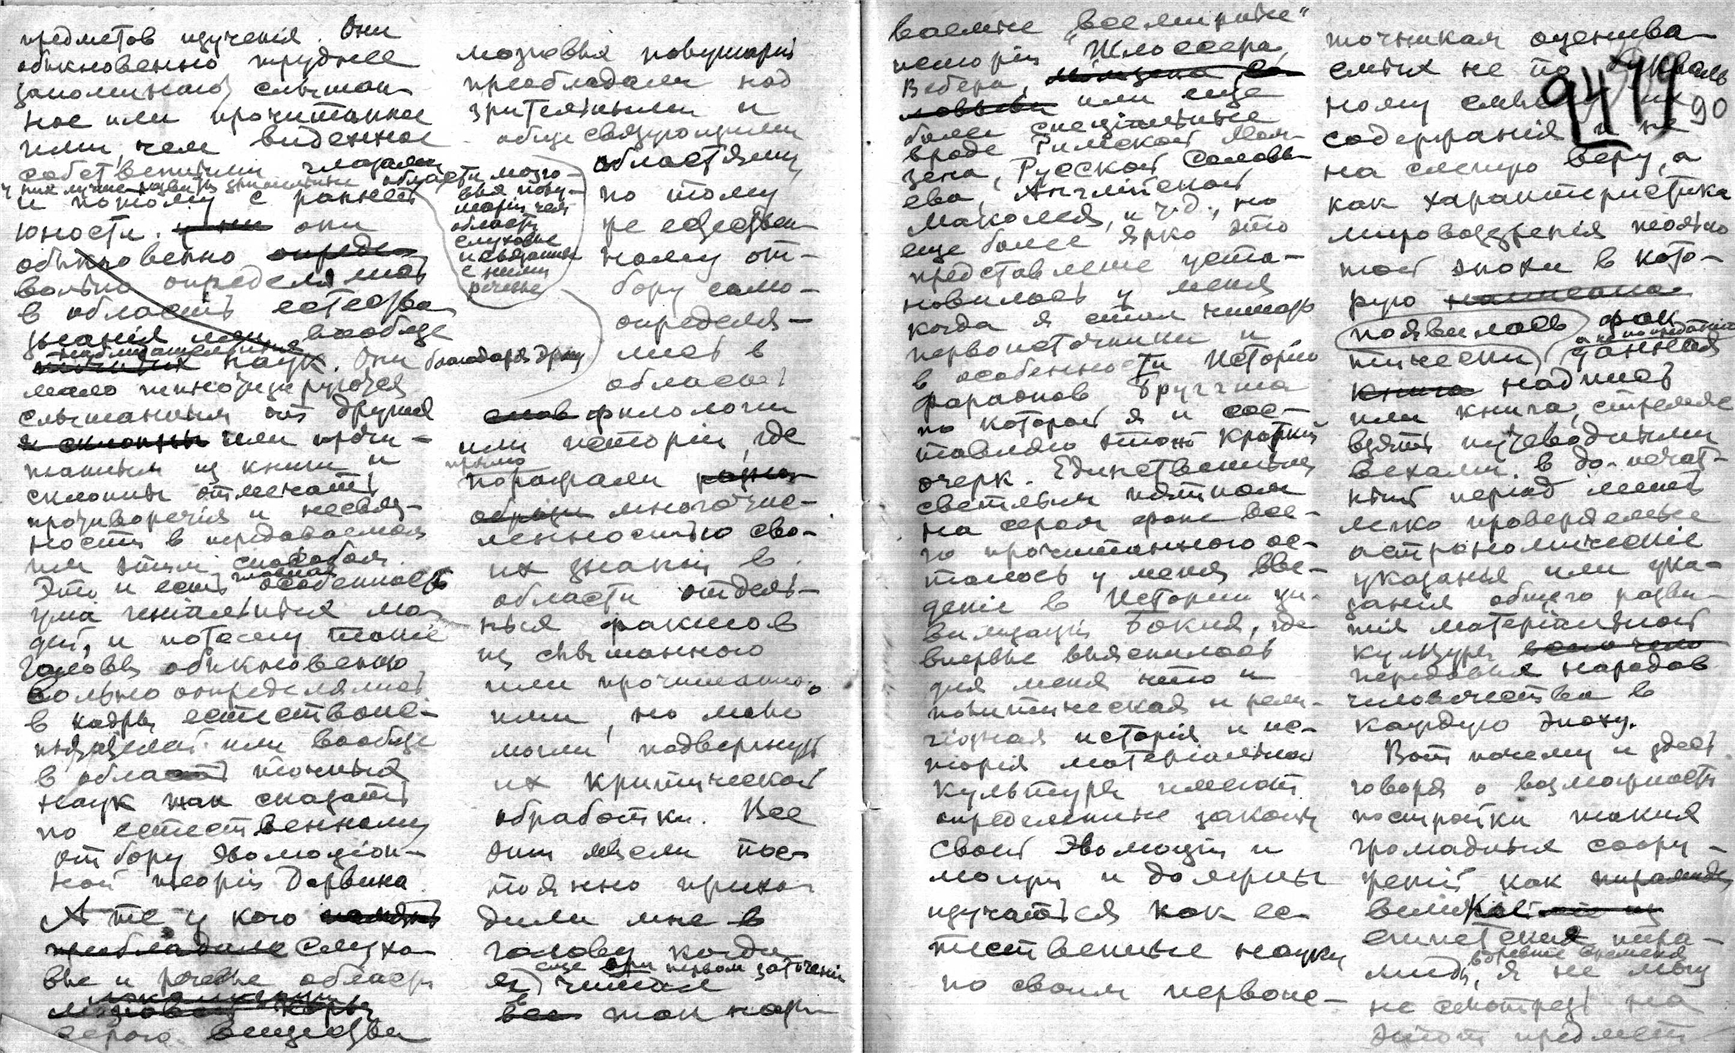 предметов изученія. Они
обыкновенно труднее
запоминают слышан-
ное или прочитанное
или, чем виденное
собственными глазами
у них лучше развиты зрительные области мозго-
выя полу-
шарій чем
области
слуховые
и связанные
с ними
речевые
и потому с ранней
юности они
обыкновенно опреде-
вольно определяются
в область естество
знанія вообще
наблюдательных
наук. Они благодаря этому
мало интересуются
слышанным от других
и склонны или прочи-
танным из книги и
склонны отмечать
противоречія и несвяз-
ность в передаваемом
им этим способом.
Это и есть главная особенность
ума геніальных лю-
дей, и потому такіе
головы обыкновенно
вольно определялись
в кадры естествоис-
пытателей или вообще
в область точных
наук так сказать
по естественному
отбору эволюціон-
ной теоріи Дарвина.
А те у кого
преобладали слухо-
вые и речевые области
мозговой коры
серого вещества
мозговых полушарій
преобладали над
зрительными и
обще связующими
областями
по тому
же естествен-
ному от-
бору само-
определя-
лись в
область
слов филологи
или исторіи, где
прямо
поражали
многочис-
ленностью сво-
их знаній в
области отдель-
ных фактов
из слышанного
или прочитанного
ими, но мало
могли подвергнуть
их критической
обработки. Все
эти мысли пос-
тоянно прихо-
дили мне в
голову когда
еще при первом заточеніи
я читал
все так назы-
ваемые "всемирные"
исторіи Шлоссера,
Вебера,
или еще
более спеціальные
вроде Римской Мом-
зена, Русской Соловь-
ева, Англійской
Маколея, и т.д., но
еще более ярко это
представленіе уста-
новилось у меня
когда я стал читать
первоисточники и
в особенности Исторію
фараонов Бругша
по которой я и сос-
тавляю этот краткій
очерк. Единственным
светлым пятном
на сером фоне все-
го прочитанного ос-
талось у меня вве-
деніе в Исторіи ци-
вилизаціи Бокля, где
впервые выяснилось
для меня что и
политическая и рели-
гіозная исторія и ис-
торія матеріальной
культуры имеют
определенные законы
своей эволюціи и
могут и должны
изучаться как ес-
тественные науки
по своим первоис-
точникам оценива-
емых не по букваль-
90
ному смыслу их
содержанія и не
на слепую веру, а
как характеристика
міровоззренія
той эпохи в кото-
рую написана
появилась фак
тически
данная
книга надпись
или книга, стремясь
взять путеводными
вехами в до-печат-
ный період лишь
легко проверяемые
астрономическіе
указанія или ука-
занія общего разви-
тія матеріальной
культуры
передовых народов
человечества в
каждую эпоху.
Вот почему и здесь
говоря о возможности
постройки таких
громадных соору-
женій как пирамиды
великой
египетскія пира-
миды, в древніе времена
я не могу
не смотреть на
этот предмет